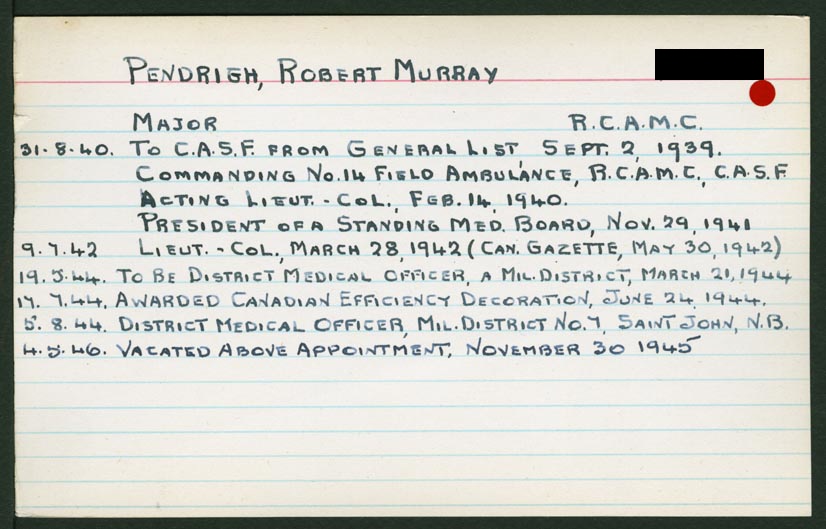 PENDRIGH, ROBERT MURRAY
MAJOR R.C.A.M.C.
31.8.40. TO C.A.S.F. FROM GENERAL LIST, SEPT. 2, 1939.
COMMANDING NO.14 FIELD AMBULANCE, R.C.A.M.C., C.A.S.F.
ACTING LIEUT.-COL., FEB. 14, 1940.
PRESIDENT OF A STANDING MED. BOARD, NOV. 29, 1941
9.7.42 LIEUT.-COL., MARCH 28, 1942 (CAN. GAZETTE, MAY 30, 1942)
19.5.44. TO BE DISTRICT MEDICAL OFFICER, A MIL. DISTRICT, MARCH 21, 1944
17.7.44. AWARDED CANADIAN EFFICIENCY DECORATION, JUNE 24, 1944.
5.8.44. DISTRICT MEDICAL OFFICER, MIL. DISTRICT NO.7, SAINT JOHN, N.B.
4.5.46. VACATED ABOVE APPOINTMENT, NOVEMBER 30 1945